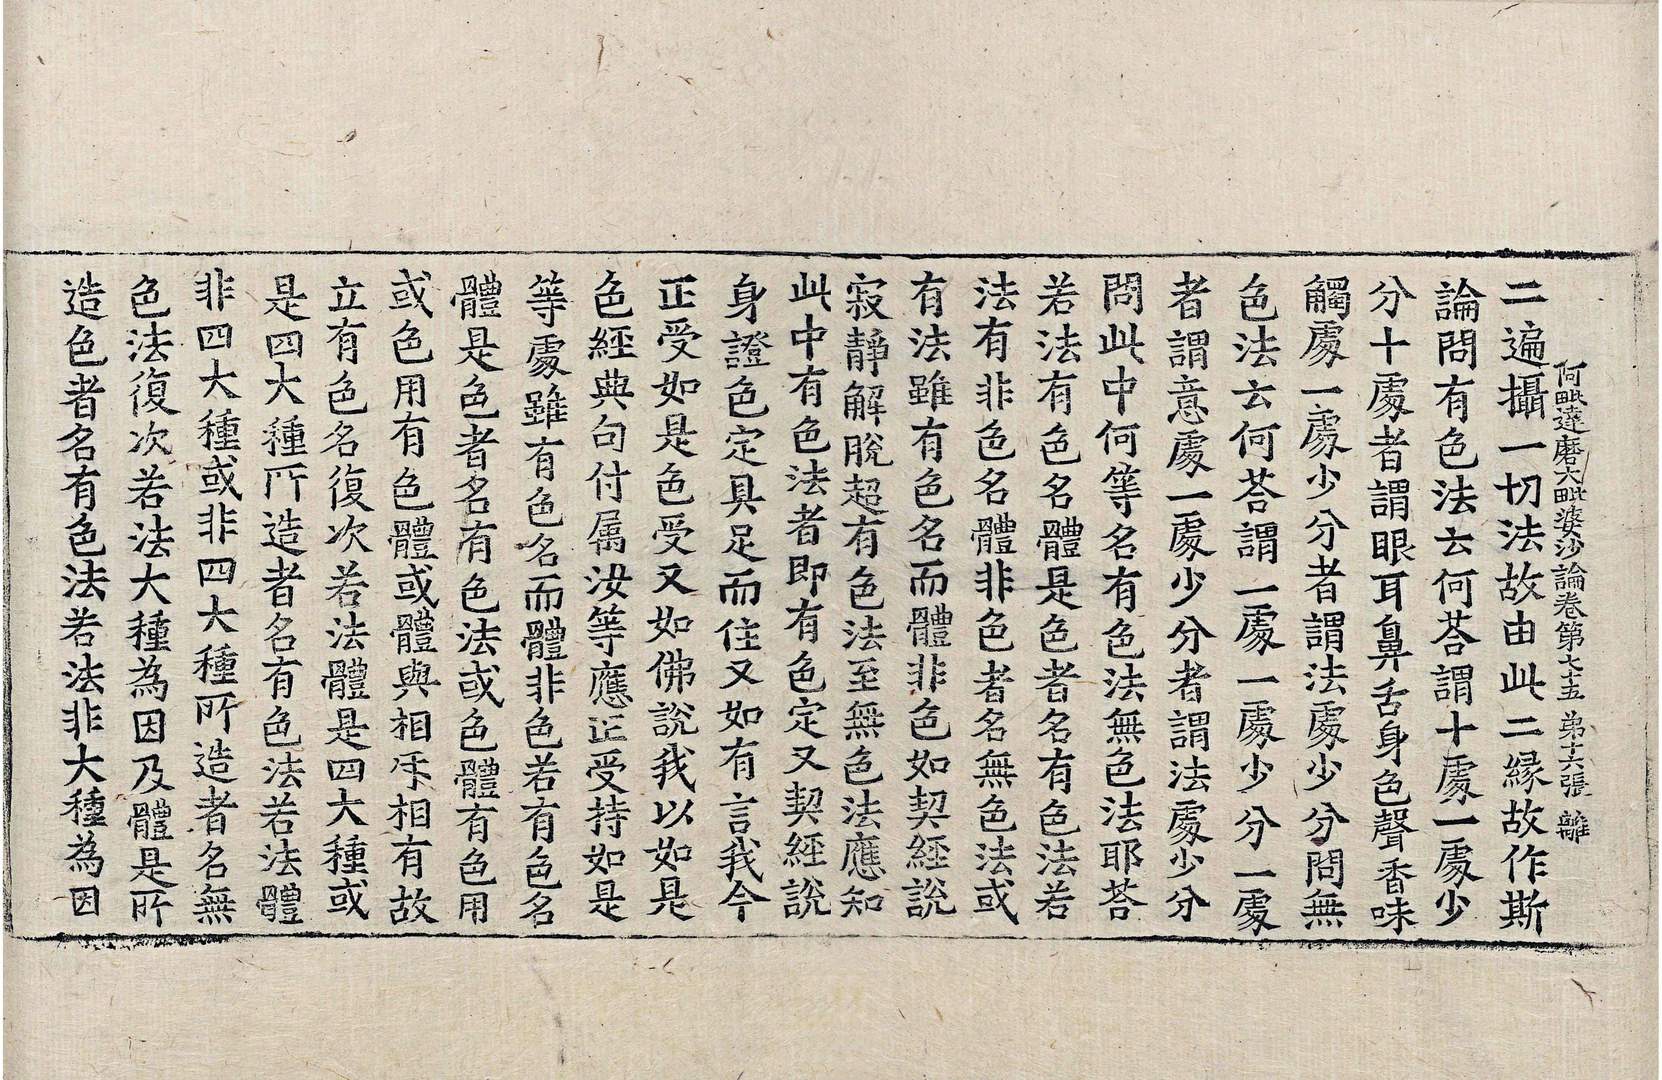 阿毗達磨大毗婆沙論卷第七十五 第十六張 離
二遍攝一切法故由此二緣故作斯
論問有色法云何荅謂十處一處少
分十處者謂眼耳鼻舌身色聲香味
觸處一處少分者謂法處少分問無
色法云何荅謂一處一處少分一處
者謂意處一處少分者謂法處少分
問此中何等名有色法無色法耶荅
若法有色名體是色者名有色法若
法有非色名體非色者名無色法或
有法雖有色名而體非色如契經說
寂靜解脫超有色法至無色法應知
此中有色法者即有色定又契經說
身證色定具足而住又如有言我今
正受如是色受又如佛說我以如是
色經典句付属汝等應正受持如是
等處雖有色名而體非色若有色名
體是色者名有色法或色體有色用
或色用有色體或體與相㸦相有故
立有色名復次若法體是四大種或
是四大種所造者名有色法若法體
非四大種或非四大種所造者名無
色法復次若法大種為因及體是所
造色者名有色法若法非大種為因